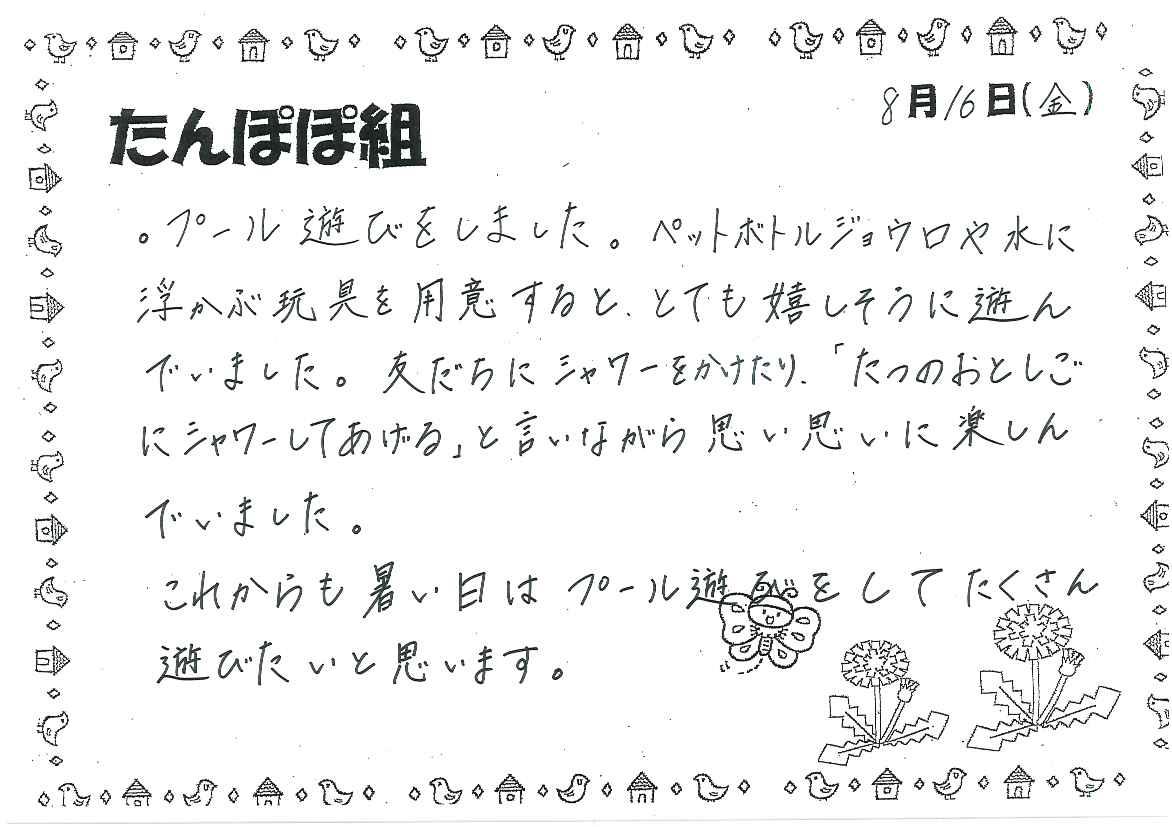 8月16日(金)
たんぽぽ組
。プール遊びをしました。ペットボトルジョウロや水に
浮かぶ玩具を用意すると、とても嬉しそうに遊ん
でいました。友だちにシャワーをかけたり、「たつのおとしご
にシャワーしてあげる」と言いながら思い思いに楽しん
でいました。
これからも暑い日はプール遊びをしてたくさん
遊びたいと思います。